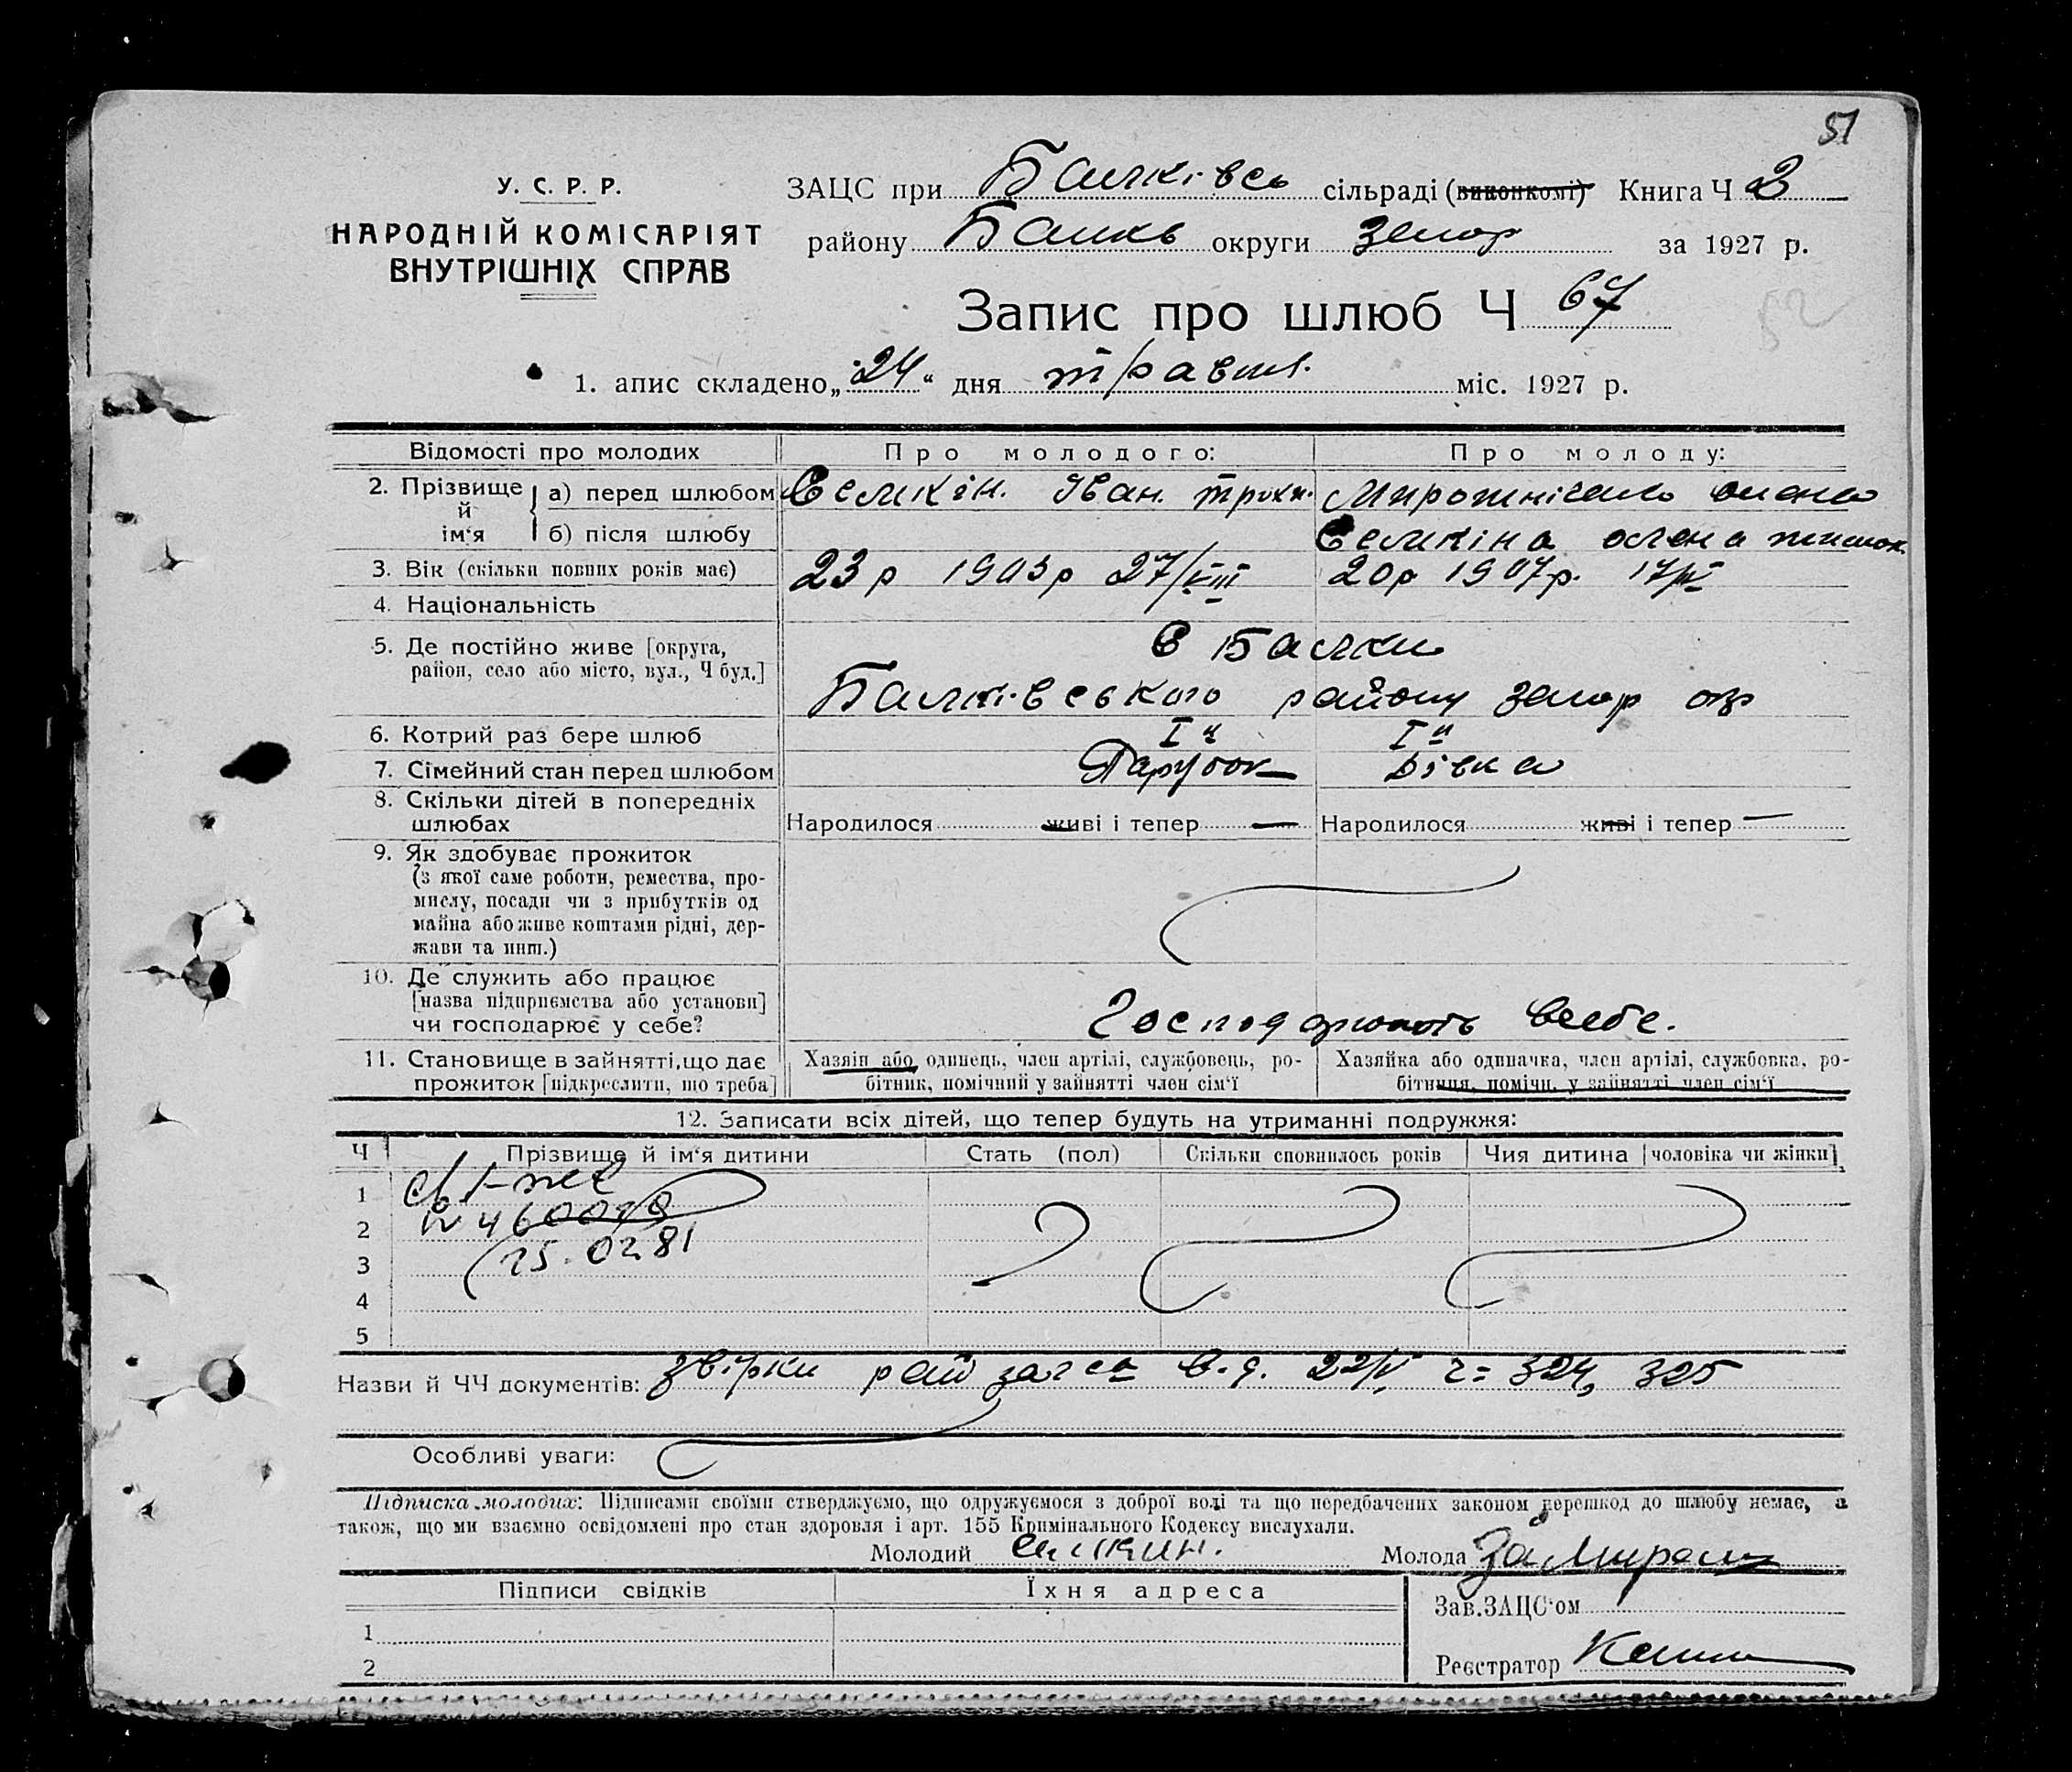 51
У. С. Р. Р.
НАРОДНІЙ КОМІСАРІЯТ
ВНУТРІШНІХ СПРАВ
ЗАЦС при Балківсь сільраді (виконкомі) Книга Ч 2
району Балків округи Запор за 1927 р.
Запис про шлюб Ч 67
52
1. апис складено „24“ дня травня міс. 1927 р.
Відомості про молодих Про молодого: Про молоду:
2. Прізвище й ім‘я
а) перед шлюбом Велікін. Іван. Трохи. Мирошніченко Олена
б) після шлюбу Великіна олена тимох.
3. Вік (скільки повних років має) 23 р 1903 р 27/VIII 20 р 1907 р. 17/IV
4. Національність
5. Де постійно живе [округа, С Балки
район, село або місто, вул., Ч буд.]
Балківського району запор окр
6. Котрий раз бере шлюб І й І й
7. Сімейний стан перед шлюбом Парубок дівка
8. Скільки дітей в попередніх
шлюбах Народилося живі і тепер — Народилося живі і тепер —
9. Як здобуває прожиток
(з якої саме роботи, ремества, про-
мислу, посади чи з прибутків од
майна або живе коштами рідні, дер-
жави та инш.)
10. Де служить або працює
[назва підприємства або установи]
чи господарює у себе? Господарюють всебе.
11. Становище в зайнятті, що дає Хазяін або одинець, член артілі, службовець, ро- Хазяйка або одиначка, член артілі, службовка, ро-
прожиток [підкреслити, що треба] бітник, помічний у зайнятті член сім‘ї бітниця, помічн. у зайнятті член сім‘ї
12. Записати всіх дітей, що тепер будуть на утриманні подружжя:
Ч Прізвище й ім‘я дитини Стать (пол) Скільки сповнилось років Чия дитина [чоловіка чи жінки]
1
2
3 25.02.81
4
5
Назви й ЧЧ документів: звірки рай загса в.д. 22/V ч= 324, 325
Особливі уваги:
Підписка молодих: Підписами своїми стверджуємо, що одружуємося з доброї волі та що передбачених законом перешкод до шлюбу немає, а
також, що ми взаємно освідомлені про стан здоровля і арт. 155 Кримінального Кодексу вислухали.
Молодий Молода За
Підписи свідків Їхня адреса
Зав. ЗАЦС‘ом
1
Реєстратор
2